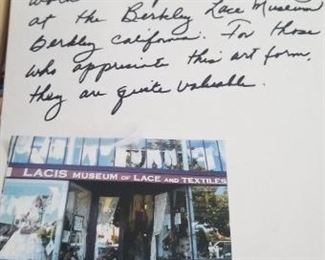 at the Berkley Lace Museum
Berkley California. For those
who appresiate this art form,
they are quite valuable.
LACIS MUSEUM OF LACE AND TEXTILES